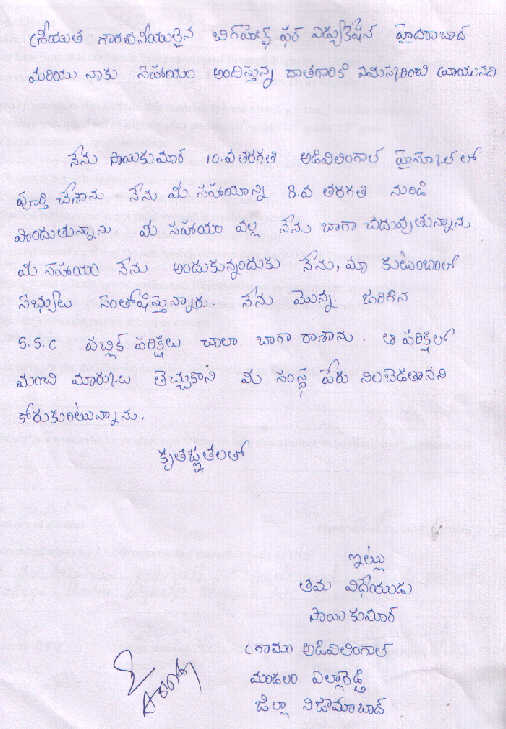 శ్రీయుత గౌరవనీయులైన బిగ్‌హెల్ప్ ఫర్ ఎడ్యుకేషన్ హైదరాబాద్
మరియు నాకు సహాయం అందిస్తున్న దాతగారికి నమస్కరించి వ్రాయునది
నేను సాయికుమార్ 10.వ తరగతి అడివిలింగాల్ హైస్కూల్ లో
పూర్తి చేసాను. నేను మీ సహాయాన్ని 8.వ తరగతి నుండి
పొందుతున్నాను. మీ సహాయం వల్ల నేను బాగా చదువుతున్నాను
మీ సహాయం నేను అందుకున్నందుకు నేను, మా కుటుంబంలో
సభ్యులు సంతోషిస్తున్నారు. నేను మొన్న జరిగిన
S.S.C పబ్లిక్ పరిక్షలు చాలా బాగా రాశాను. ఆ పరిక్షలో
మంచి మార్కులు తెచ్చుకొని మీ సంస్థ పేరు నిలబెడతానని
కోరుకుంటున్నాను.
కృతజ్ఞతలతో
ఇట్లు
తమ విధేయుడు
సాయి కుమార్
గ్రామం అడివిలింగాల్
మండలం ఎల్లారెడ్డి
జిల్లా నిజామాబాద్